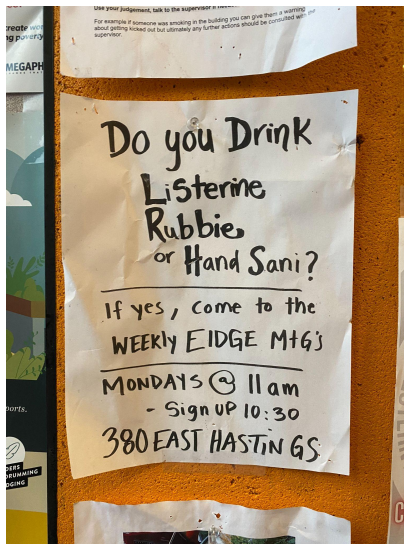 Use your judgement, talk to the supervisor
For example if someone was smoking in the building you can give them a warning
about getting kicked out but ultimately any further actions should be consulted with the
supervisor.
create
ng poverty
MEGAPH
Do you Drink
Listerine
Rubbie
or Hand Sani?
If yes, come to the
WEEKLY EIDGE MtG's
MONDAYS @ 11am
- Sign UP 10:30
380 EAST HASTINGS
ports.
DERS
DRUMMING
DGING